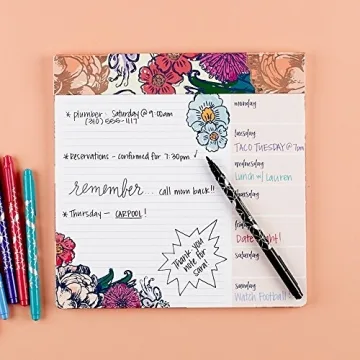 * plumber : Saturday @ 9:00am
(310) 555-1117
* Reservations - confirmed for 7:30pm!
remember... call mom back!!
* Thursday - CARPOOL!
Thank you
note for
Sara!
monday
tuesday
TACO TUESDAY @ 7pm
wednesday
Lunch w/ Lauren
thursday
friday
Date night!
saturday
sunday
Watch Football